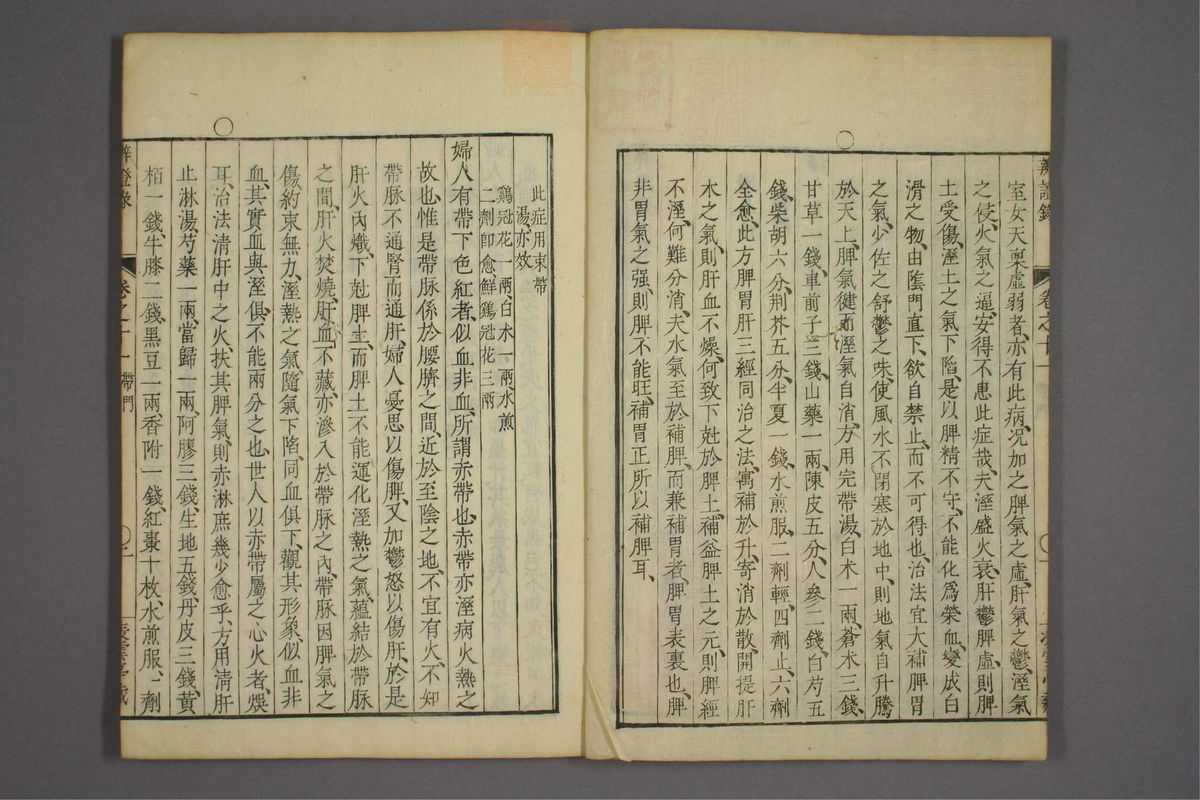 室女天稟虛弱者、亦有此病、况加之脾氣之虛、肝氣之鬱、溼氣
之侵、火氣之逼、安得不患此症哉、夫溼盛火衰、肝鬱脾虛、則脾
土受傷、溼土之氣下陷、是以脾精不守、不能化爲榮血、變成白
滑之物、由陰門直下、欲自禁止、而不可得也、治法宜大補脾胃
之氣、少佐之舒鬱之味、使風木不閉塞於地中、則地氣自升騰
於天上、脾氣健而溼氣自消、方用完帶湯、白术一兩、蒼术三錢、
甘草一錢、車前子三錢、山藥一兩、陳皮五分、人參二錢、白芍五
錢、柴胡六分、荆芥五分、半夏一錢、水煎服、二劑輕、四劑止、六劑
全愈、此方脾胃肝三經同治之法、寓補於升、寄消於散、開提肝
木之氣、則肝血不燥、何致下尅於脾土、補益脾土之元、則脾經
不溼、何難分消、夫水氣至於補脾、而兼補胃者、脾胃表裏也、脾
非胃氣之强、則脾不能旺、補胃正所以補脾耳、
辨證錄
卷之十一
此症用束帶
湯亦效
鷄冠花一兩白术一兩、水煎
二劑卽愈、鮮鷄冠花三兩
婦人有帶下色紅者、似血非血、所謂赤帶也、赤帶亦溼病火熱之
故也、惟是帶脉係於腰臍之間、近於至陰之地、不宜有火、不知
帶脉不通腎而通肝、婦人憂思以傷脾、又加鬱怒以傷肝、於是
肝火內熾、下尅脾土、而脾土不能運化溼熱之氣、蘊結於帶脉
之間、肝火焚燒、肝血不藏、亦滲入於帶脉之內、帶脉因脾氣之
傷、約束無力、溼熱之氣、隨氣下陷、同血俱下、觀其形象、似血非
血、其實血與溼俱、不能兩分之也、世人以赤帶屬之心火者、悞
耳、治法清肝中之火、扶其脾氣、則赤淋庶幾少愈乎、方用清肝
止淋湯、芍藥一兩、當歸一兩、阿膠三錢、生地五錢、丹皮三錢、黃
栢一錢、牛膝二錢、黑豆一兩、香附一錢、紅棗十枚、水煎服、一劑
辨證錄
卷之十一
帶門
二